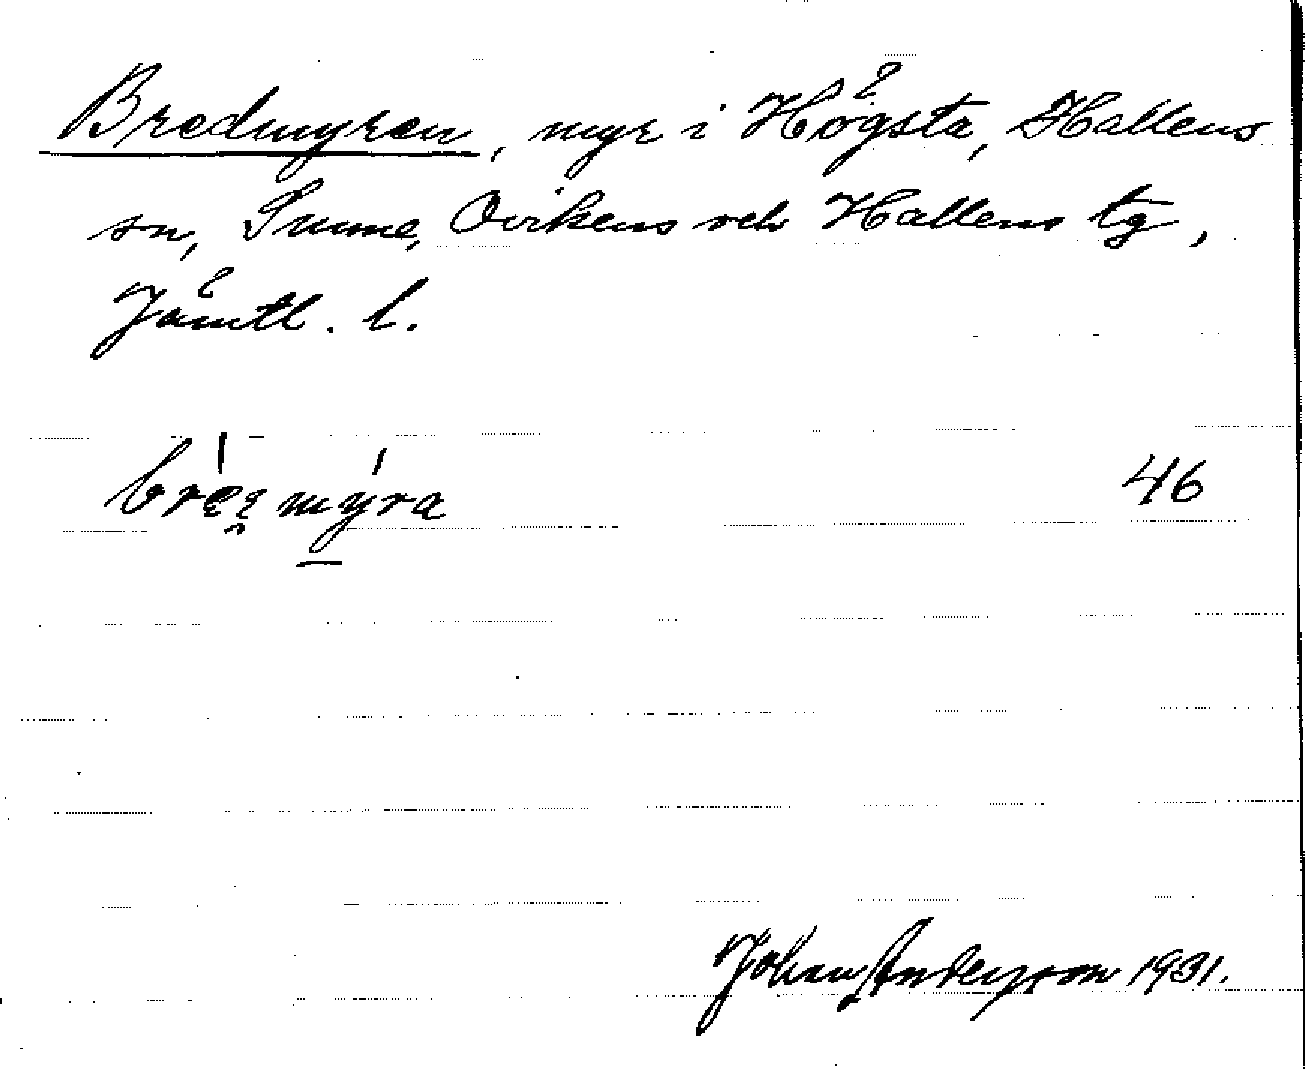 Bredmyren, myr i Högsta, Hallens
sn, Sunne, Ovikens och Hallens tg,
Jämtl. l.
46
Johan Andersson 1931.